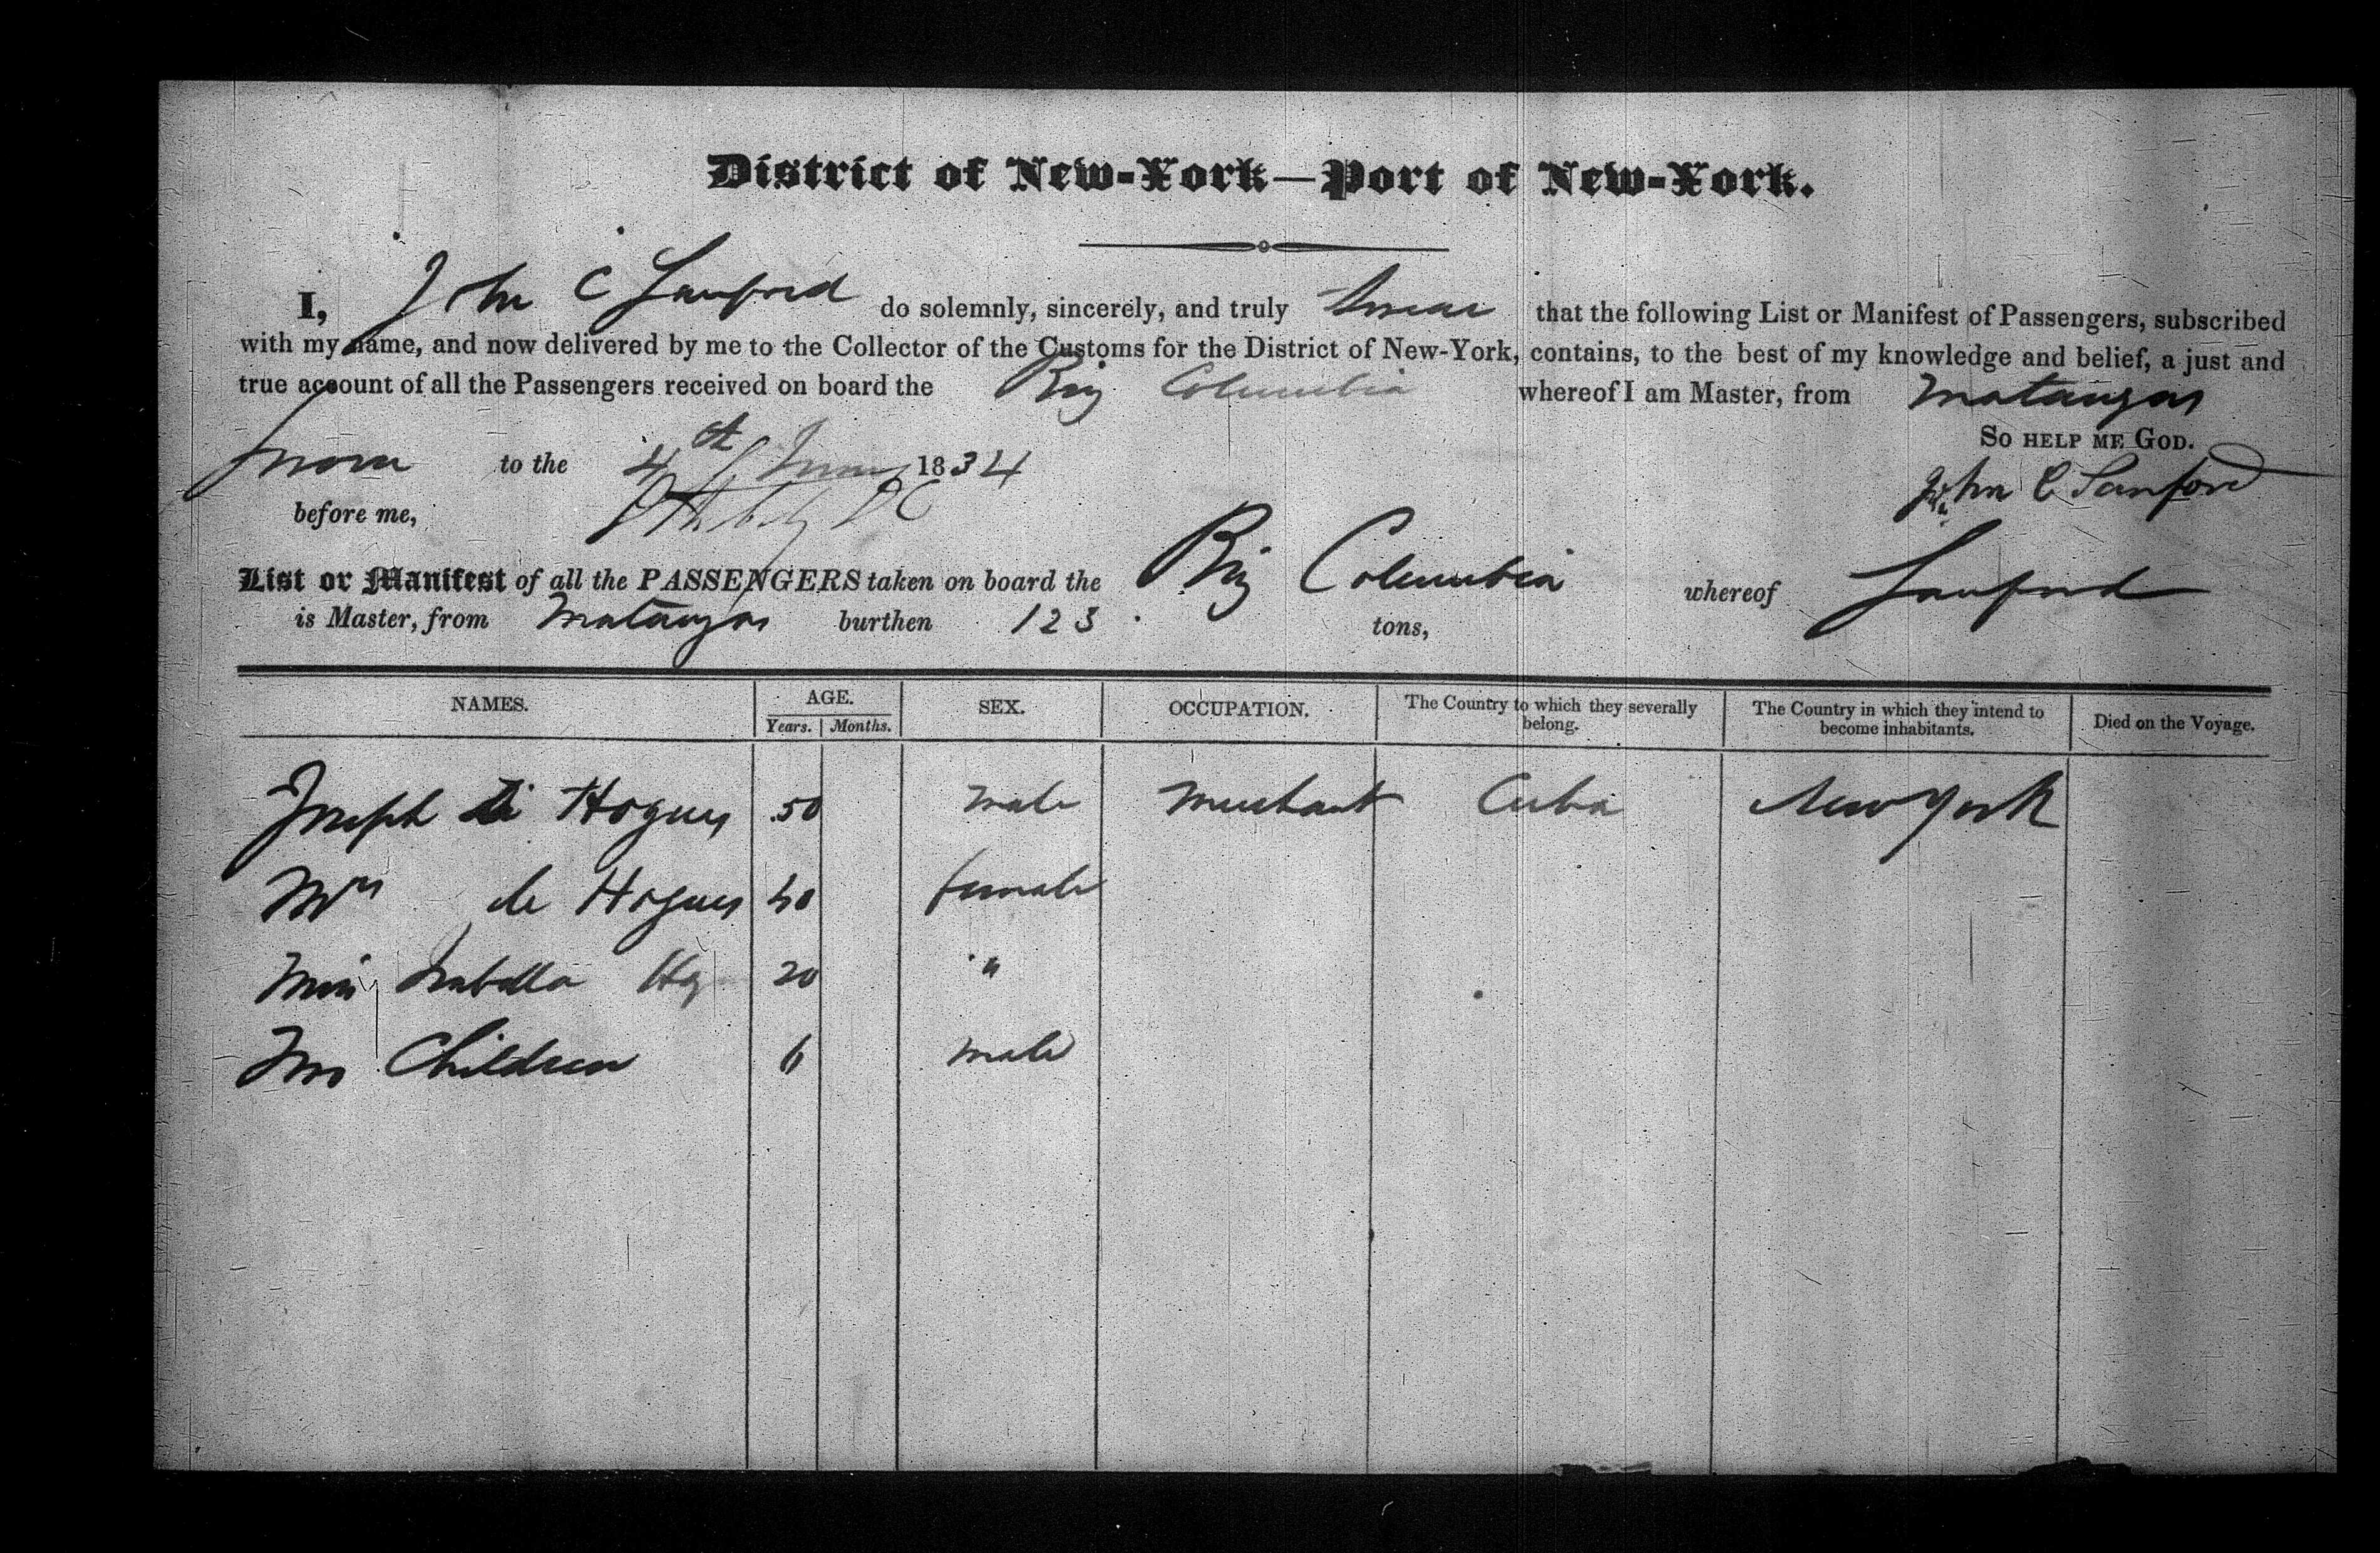 District of New-York—Port of New-York.
I, John C Sanford do solemnly, sincerely, and truly swear that the following List or Manifest of Passengers, subscribed
with my name, and now delivered by me to the Collector of the Customs for the District of New-York, contains, to the best of my knowledge and belief, a just and
true account of all the Passengers received on board the Brig Columbia whereof I am Master, from Matanzas
So help me God.
Sworn to the 4th 1834
John C Sanford
before me,
List or Manifest of all the PASSENGERS taken on board the Brig Columbia whereof Sanford
is Master, from Matanzas burthen 123 tons,
NAMES. AGE. SEX. OCCUPATION. The Country to which they severally belong. The Country in which they intend to become inhabitants. Died on the Voyage.
Years. Months.
Joseph de Hogues 50 male Merchant Cuba New York
Mrs de Hogues 40 female
Miss Isabella 20 "
Two Children 6 male